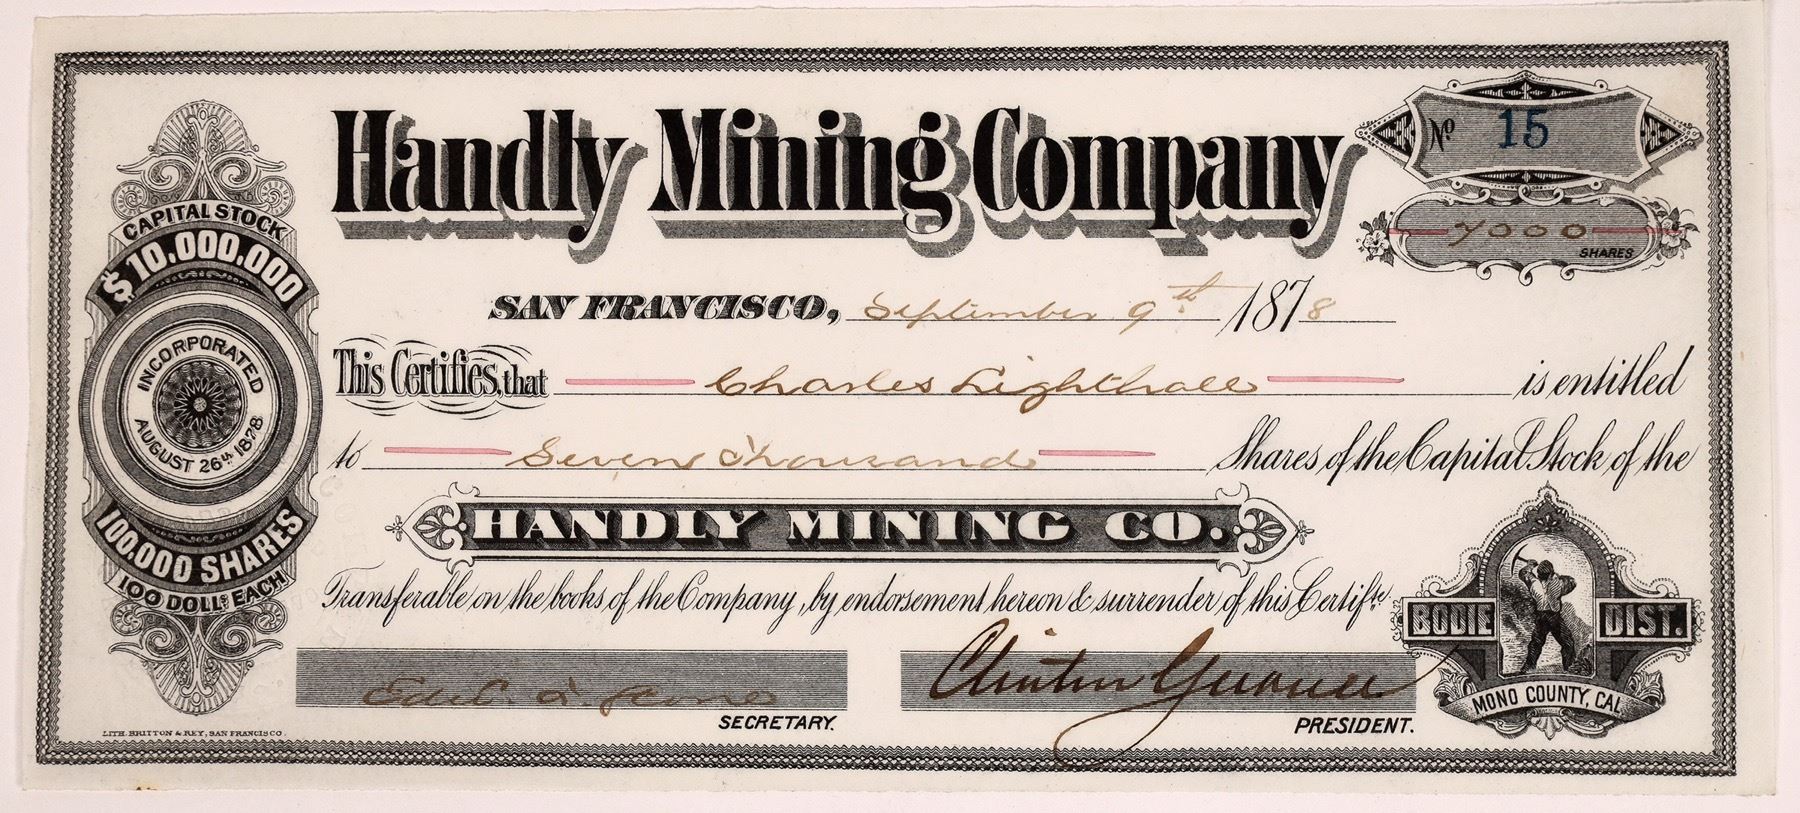 Handly Mining Company
No 15
7000
SHARES
CAPITAL STOCK
$10,000,000
INCORPORATED
AUGUST 26th 1878
100,000 SHARES
100 DOLLS EACH
SAN FRANCISCO, September 9th 1878
This Certifies, that Charles Lighthall is entitled
to Seven Thousand Shares of the Capital Stock of the
HANDLY MINING CO.
Transferable on the books of the Company, by endorsement hereon & surrender of this Certifte.
BODIE DIST.
MONO COUNTY, CAL.
SECRETARY.
Clinton
PRESIDENT.
LITH. BRITTON & REY, SAN FRANCISCO.